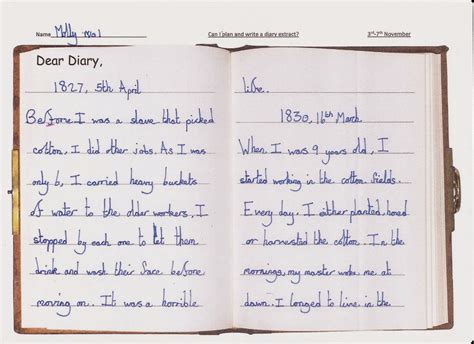 Name Molly
Can I plan and write a diary extract?
3rd-7th November
Dear Diary,
1827, 5th April
Before I was a slave that picked
cotton, I did other jobs. As I was
only 6, I carried heavy buckets
of water to the older workers, I
stopped by each one to let them
drink and wash their face before
moving on. It was a horrible
life.
1830, 16th March.
When I was 9 years old, I
started working in the cotton fields.
Every day, I either planted, hoed
or harvested the cotton. In the
mornings, my master woke me at
dawn. I longed to live in the